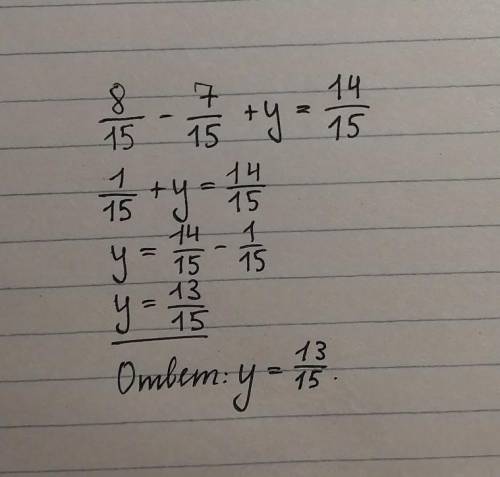 8/15 - 7/15 + y = 14/15
1/15 + y = 14/15
y = 14/15 - 1/15
y = 13/15
Ответ: y = 13/15.